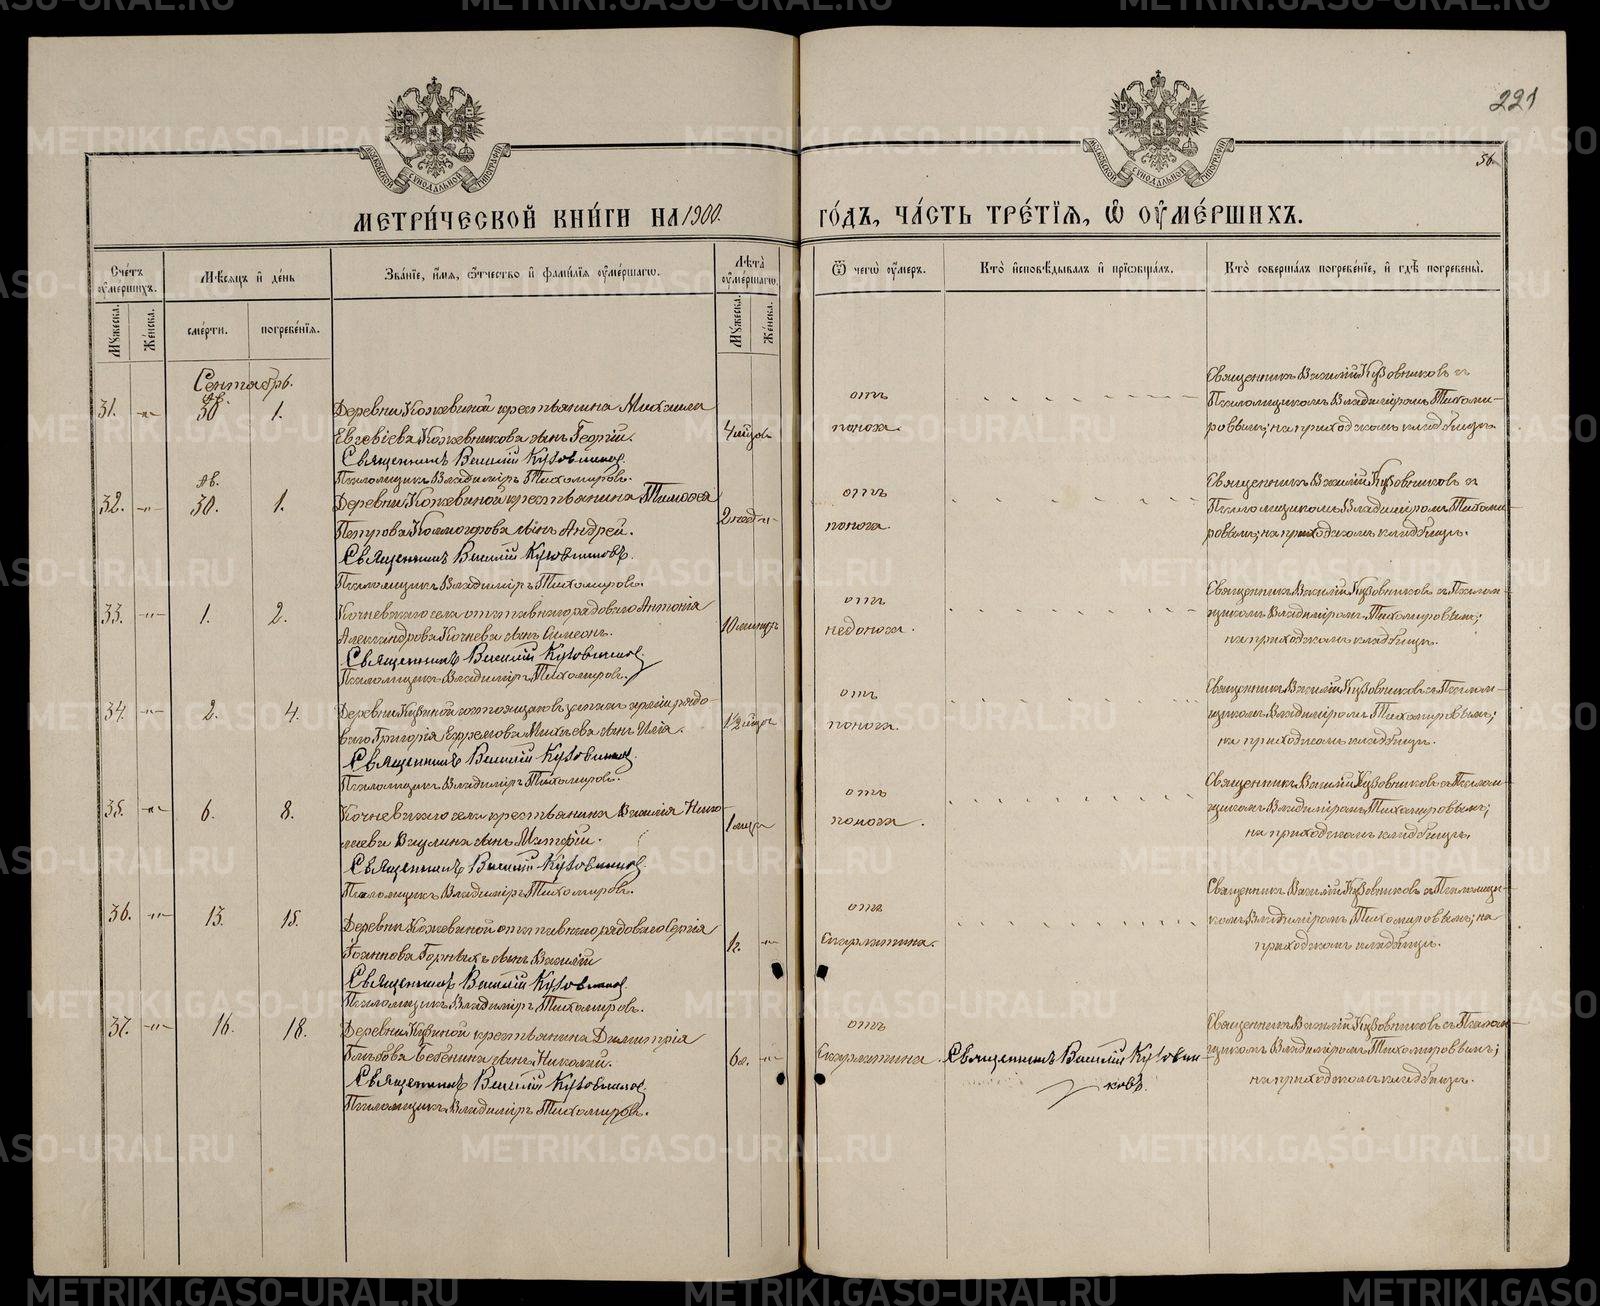 221
56
МОСКОВСКОЙ СУНОДАЛЬНОЙ ТИПОГРАФІИ
МОСКОВСКОЙ СУНОДАЛЬНОЙ ТИПОГРАФІИ
МЕТРИ́ЧЕСКОЙ КНИ́ГИ НА 1900.
ГО́ДЪ, ЧА́СТЬ ТРЕ́ТІѦ, Ѽ ОУМЕ́РШИХЪ.
Сче́тъ оумершихъ.
Мѣ́сѧцъ и҆ де́нь
Зва́нїе, и҆́мѧ, ѻ҆́тчество и҆ фами́лїѧ оуме́ршагѡ.
Лѣта̀ оуме́ршагѡ.
Ѿ чегѡ̀ оу́меръ.
Кто̀ и҆сповѣ́дывалъ и҆ прїѡбща́лъ.
Кто̀ соверша́лъ погребе́нїе, и҆ гдѣ̀ погребены̀.
Мꙋжеска.
Же́нска.
сме́рти.
погребе́нїѧ.
Мꙋжеска.
Же́нска.
Сентябрь.
31. -"- Ав. 30 1.
Деревни Кожевиной крестьянина Михаила
Евсевіева Кожевникова сынъ Георгій.
Священникъ Василій Кузовников.
Псаломщикъ Владиміръ Тихомировъ.
отъ
поноса.
Священникъ Василій Кузовниковъ съ
Псаломщикомъ Владиміромъ Тихоми-
ровымъ; на приходскомъ кладбищѣ.
32. -"- Ав. 30. 1.
Деревни Кожевиной крестьянина
Петрова сынъ Андрей.
Священникъ Василій Кузовниковъ.
Псаломщикъ Владиміръ Тихомировъ.
2 нед. -"-
отъ
поноса.
Священникъ Василій Кузовниковъ съ
Псаломщикомъ Владиміромъ Тихоми-
ровымъ; на приходскомъ кладбищѣ.
33. -"- 1. 2.
Кочневскаго села отставнаго рядоваго Антонія
Александрова Кочнева сынъ Симеонъ.
Священникъ Василій Кузовников.
Псаломщикъ Владиміръ Тихомировъ.
10 минутъ
отъ
недоноса.
Священникъ Василій Кузовниковъ съ Псалом-
щикомъ Владиміромъ Тихомировымъ;
на приходскомъ кладбищѣ.
34. -"- 2. 4.
Деревни состоящаго въ запасѣ арміи рядо-
ваго Григорія Ефремова сынъ Илія.
Священникъ Василій Кузовников.
Псаломщикъ Владиміръ Тихомировъ.
отъ
поноса.
Священникъ Василій Кузовниковъ съ Псалом-
щикомъ Владиміромъ Тихомировымъ;
на приходскомъ кладбищѣ.
35. -"- 6. 8.
Кочневскаго села крестьянина Василія Нико-
лаева сынъ Матфій.
Священникъ Василій Кузовников.
Псаломщикъ Владиміръ Тихомировъ.
отъ
поноса.
Священникъ Василій Кузовниковъ съ Псалом-
щикомъ Владиміромъ Тихомировымъ;
на приходскомъ кладбищѣ.
36. -"- 13. 15.
Деревни Кожевиной отставнаго рядоваго Сергія
Іоаннова Горныхъ сынъ Василій
Священникъ Василій Кузовников.
Псаломщикъ Владиміръ Тихомировъ.
1 г. -"-
отъ
Скарлатина.
Священникъ Василій Кузовниковъ съ Псаломщи-
комъ Владиміромъ Тихомировымъ; на
приходскомъ кладбищѣ.
37. -"- 16. 18.
Деревни крестьянина Димитрія
Глѣбова Бабенина сынъ Николай.
Священникъ Василій Кузовников.
Псаломщикъ Владиміръ Тихомировъ.
6 л. -"-
отъ
Скарлатина.
Священникъ Василій Кузовни-
ковъ.
Священникъ Василій Кузовниковъ съ Псалом-
щикомъ Владиміромъ Тихомировымъ;
на приходскомъ кладбищѣ.
METRIKI.GASO-URAL.RU